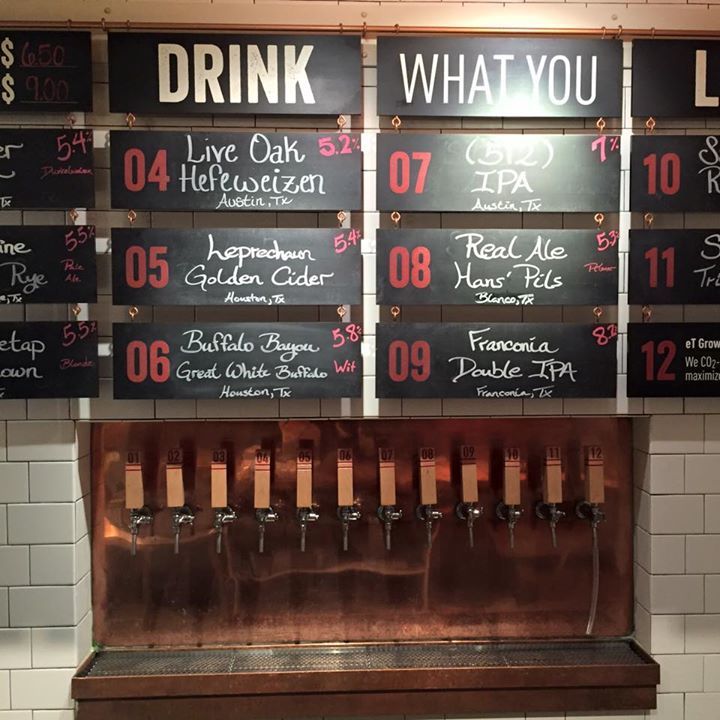 $ 6.50
$ 9.00
DRINK
WHAT YOU
L
5.4%
04
Live Oak
Hefeweizen
Austin, Tx
5.2%
07
(512)
IPA
Austin, Tx
7%
10
5.5%
Pale
Ale
Rye
05
Leprechaun
Golden Cider
Houston, Tx
5.4%
08
Real Ale
Hans' Pils
Blanco, Tx
5.3%
Pilsner
11
5.5%
Blonde
06
Buffalo Bayou
Great White Buffalo
Houston, Tx
5.8%
Wit
09
Franconia
Double IPA
Franconia, Tx
8.2%
12
eT Grow
We CO2-
maximiz
01 02 03 04 05 06 07 08 09 10 11 12